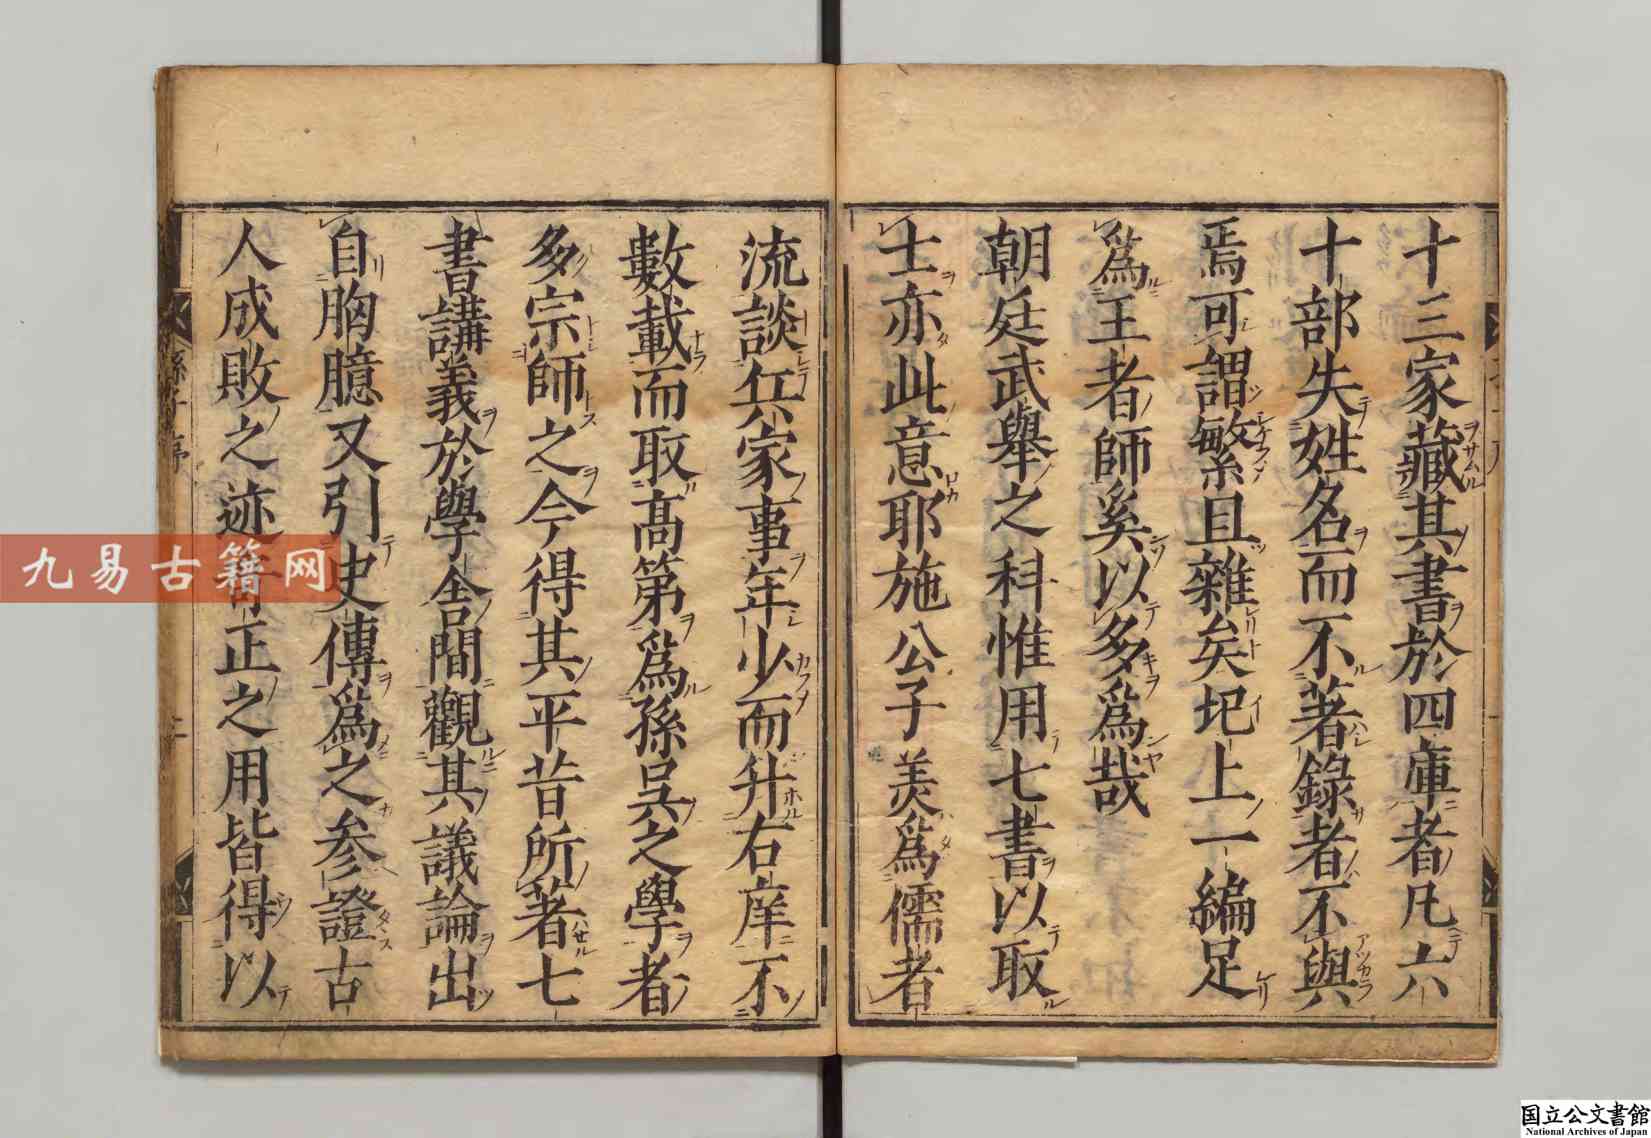 十三家藏其書於四庫者凡六
十部失姓名而不著錄者不與
焉可謂繁且雜矣圯上一編足
爲王者師奚以多爲哉
朝廷武舉之科惟用七書以取
士亦此意耶施公子美爲儒者
流談兵家事年少而升右庠不
數載而取高第爲孫吳之學者
多宗師之今得其平昔所著七
書講義於學舍間觀其議論出
自胸臆又引史傳爲之参證古
人成敗之迹正之用皆得以
孫子序
九易古籍网
国立公文書館
National Archives of Japan